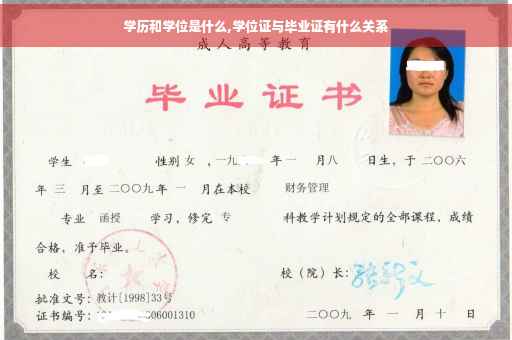 学历和学位是什么,学位证与毕业证有什么关系
成人高等教育
毕业证书
学生 性别 女 ，一九 年 一 月 八 日生，于 二〇〇六
年 三 月至 二〇〇九 年 一 月在本校 财务管理
专业 函授 学习，修完 专 科教学计划规定的全部课程，成绩
合格，准予毕业。
校 名： 校（院）长：
批准文号：教计[1998]33号
证书编号： 06001310 二〇〇九 年 一 月 十 日